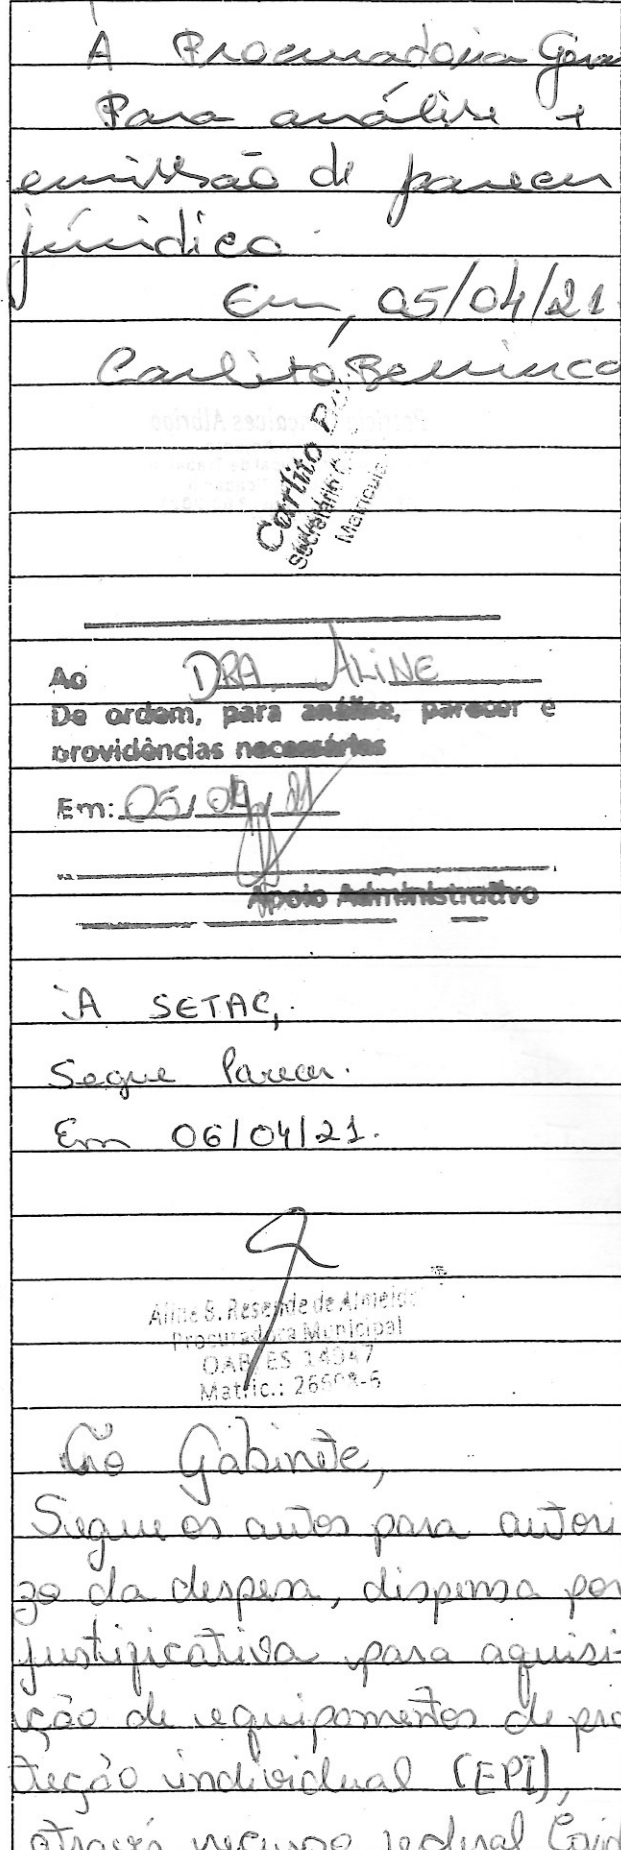 À Procuradoria Geral
Para análise e
emissão de parecer
júridico.
Em, 05/04/21.
Carlito
Carlito
Secretário
Matrícula
Ao DRA. ALINE
De ordem, para análise, parecer e
providências necessárias
Em: 05/04/21
Apoio Administrativo
À SETAC,
Segue Parecer.
Em 06/04/21.
Aline B. Resende de Almeida
Procuradora Municipal
OAB ES
Matric.:
Ao Gabinete,
Segue os autos para autori
zo da despesa, dispensa por
justificativa para aquisi-
ção de equipamentos de pro
teção individual (EPI),
através recurso federal Covid